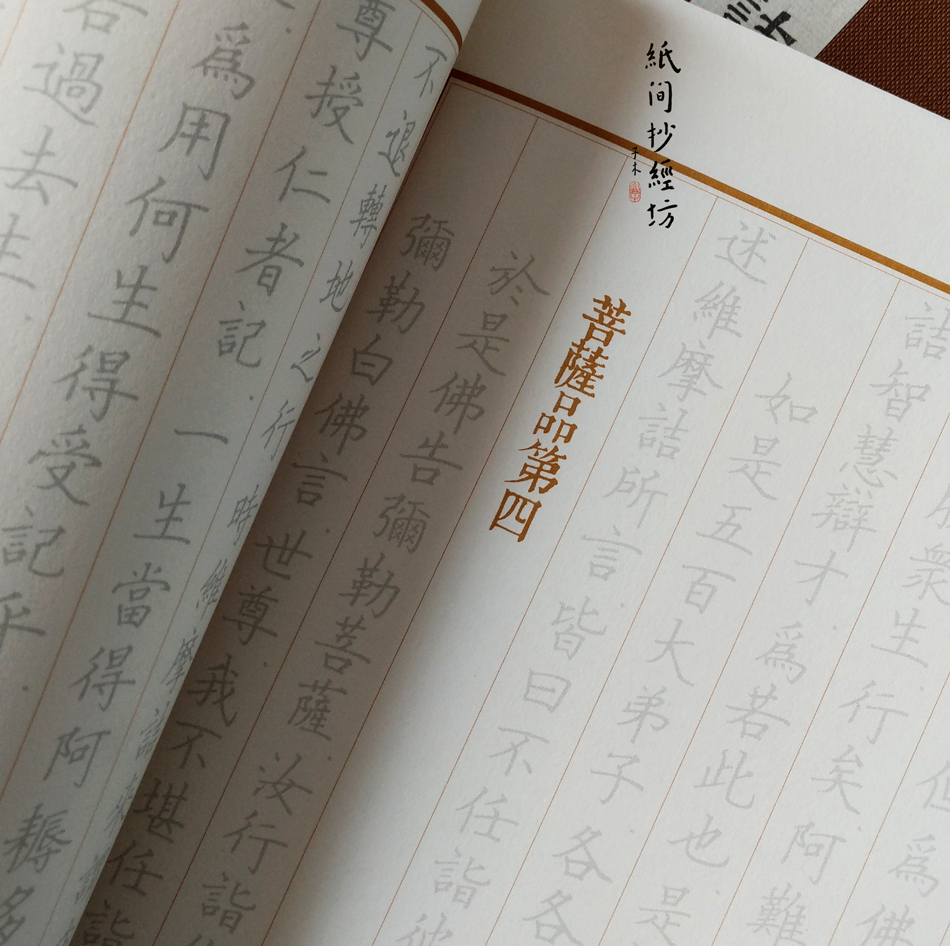 但爲佛
眾生行矣阿難
詰智慧辯才爲若此也是
如是五百大弟子各各
述維摩詰所言皆曰不任詣彼
菩薩品第四
於是佛告彌勒菩薩汝行詣
彌勒白佛言世尊我不堪任詣
不退轉地之行時維摩詰來謂
尊授仁者記一生當得阿耨多
爲用何生得受記乎
過去生
紙间抄經坊
子木